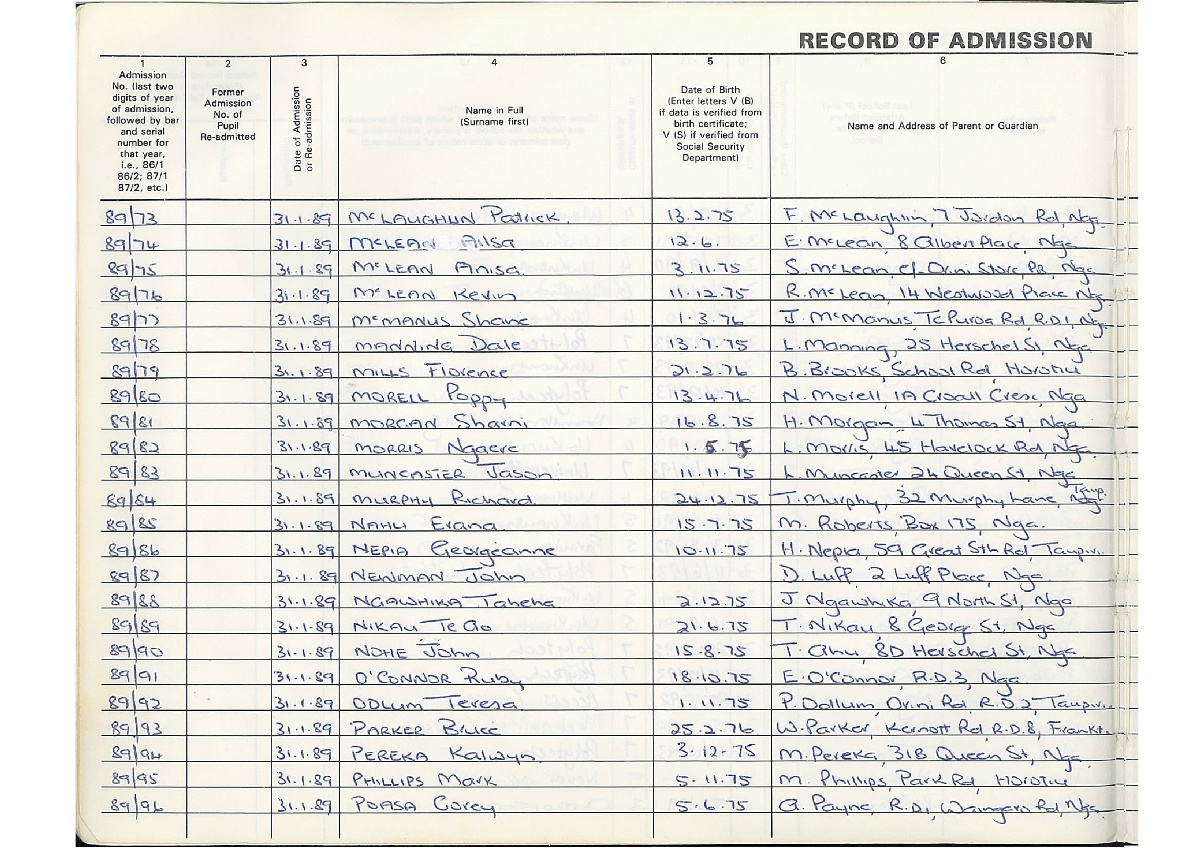 RECORD OF ADMISSION
1 2 3 4 5 6
Admission
No. (last two
digits of year
of admission,
followed by bar
and serial
number for
that year,
i.e., 86/1
86/2; 87/1
87/2, etc.)
Former
Admission
No. of
Pupil
Re-admitted
Date of Admission
or Re-admission
Name in Full
(Surname first)
Date of Birth
(Enter letters V (B)
if data is verified from
birth certificate;
V (S) if verified from
Social Security
Department)
Name and Address of Parent or Guardian
89/73 31.1.89 McLAUGHLIN Patrick. 13.2.75 F. McLaughlin, 7 Jordan Rd, Nga.
89/74 31.1.89 McLEAN Ailsa 12.6. E. McLean, 8 Albert Place, Nga
89/75 31.1.89 McLEAN Anisa. 3.11.75 S. McLean, c/- Orini Store, Nga
89/76 31.1.89 McLEAN Kevin 11.12.75 R. McLean, 14 Westwood Place Nga.
89/77 31.1.89 McMANUS Shane 1.3.76 J. McManus, Te Puroa Rd, R.D.1, Nga
89/78 31.1.89 MANNING Dale 13.7.75 L. Manning, 25 Herschel St, Nga
89/79 31.1.89 MILLS Florence 21.2.76 B. Brooks, School Rd, Horotiu
89/80 31.1.89 MORELL Poppy 13.4.76 N. Morell 1A Croall Cresc, Nga
89/81 31.1.89 MORGAN Sharni 16.8.75 H. Morgan, 4 Thomas St, Nga
89/82 31.1.89 MORRIS Ngaere 1.5.75 L. Morris, 45 Havelock Rd, Nga
89/83 31.1.89 MUNCASTER Jason 11.11.75 L. Muncaster 24 Queen St, Nga
89/84 31.1.89 MURPHY Richard. 24.12.75 T. Murphy, 32 Murphy Lane, Taup.
89/85 31.1.89 NAHLI Erana. 15.7.75 M. Roberts, Box 175, Nga.
89/86 31.1.89 NEPIA Georgeanne 10.11.75 H. Nepia, 59 Great Sth Rd, Taupiri.
89/87 31.1.89 NEWMAN John D. Luff 2 Luff Place, Nga.
89/88 31.1.89 NGAWHIKA Taheha 2.12.75 J Ngawhika, 9 North St, Nga
89/89 31.1.89 NIKAU Te Ao 21.6.75 T. Nikau, 8 George St, Nga
89/90 31.1.89 NOHE John 15.8.75 T. Ahu, 8D Herschel St, Nga
89/91 31.1.89 O'CONNOR Ruby 18.10.75 E. O'Connor, R.D.3, Nga
89/92 31.1.89 ODLUM Teresa 1.11.75 P. Odlum, Orini Rd, R.D.2, Taupiri.
89/93 31.1.89 PARKER Bruce 25.2.76 W. Parker, Kernott Rd, R.D.8, Frankt.
89/94 31.1.89 PEREKA Kalwyn. 3.12.75 M. Pereka, 31B Queen St, Nga
89/95 31.1.89 PHILLIPS Mark 5.11.75 M. Phillips, Park Rd, Horotiu
89/96 31.1.89 POASA Corey 5.6.75 A. Payne, R.D.1, Waingaro Rd, Nga.